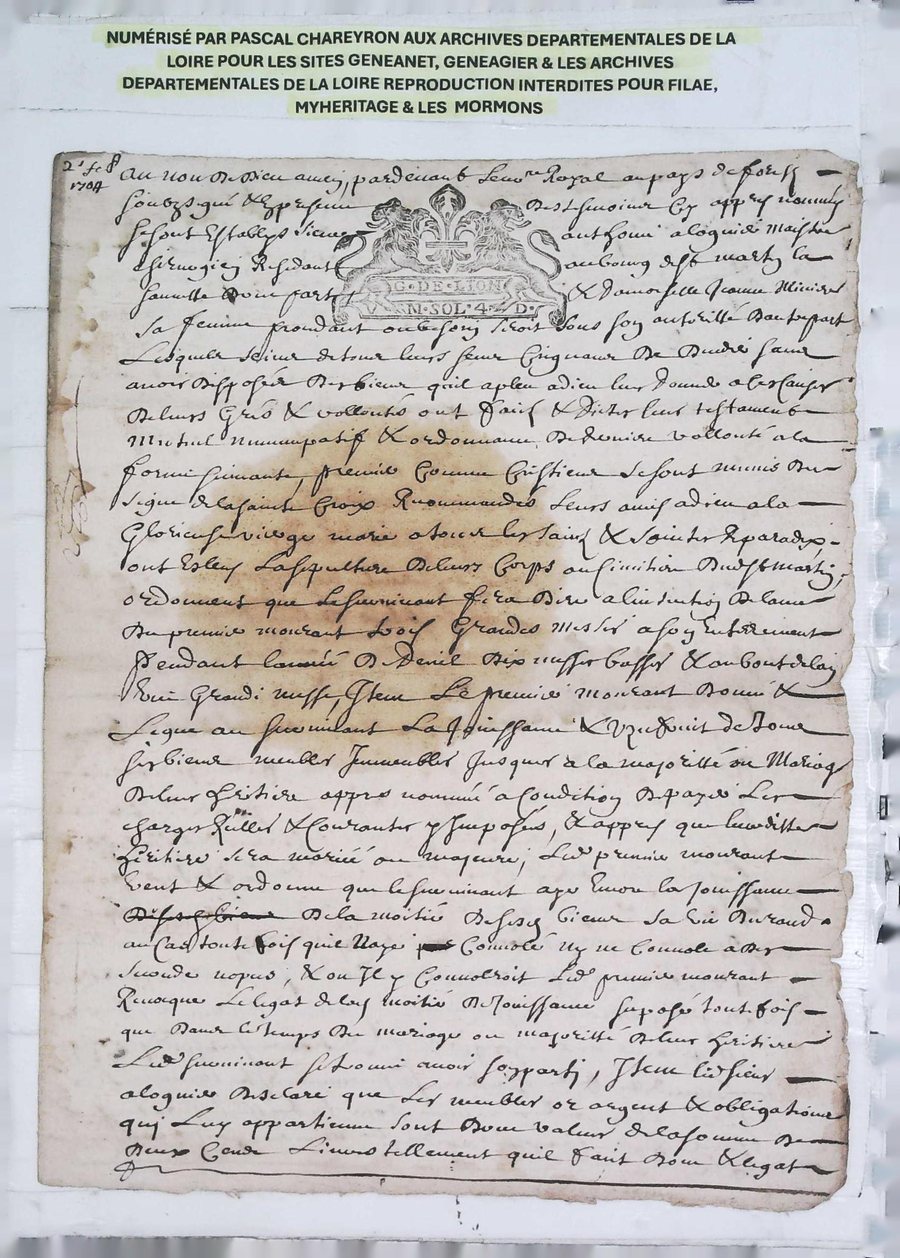 NUMÉRISÉ PAR PASCAL CHAREYRON AUX ARCHIVES DEPARTEMENTALES DE LA
LOIRE POUR LES SITES GENEANET, GENEAGIER & LES ARCHIVES
DEPARTEMENTALES DE LA LOIRE REPRODUCTION INTERDITES POUR FILAE,
MYHERITAGE & LES MORMONS
1704
Au nom de Dieu amen, pardevant le no.re Royal au pays de forestz
soubzsigné & en presence des tesmoins cy appres nommés
se sont establys sieur anthoine aloguie maistre
chirurgien Residant au bourg de st martin la
sauuette d'une part & Damoiselle Jeanne
G·DE·LION
SOL·4·D·
sa femme au besoin seroit sous son authorité d'autre part
Lesquels de tous leurs sens
auoir disposés des biens qu'il a pleu a dieu leur donner a les causes
de leurs Grés & vollontés ont faict & leur testament
mutuel nunnupatif & ordonnance de derniere vollonté a la
forme suiuante, premier Comme Crestiens se sont munis du
signe de la sainte Croix Recommandés leurs ames a dieu a la
Glorieuse vierge marie a tous les saincts & saintes de paradix,
ont esleus La sepulture de leurs Corps au cimitiere dud st martin,
ordonnent que le suruiuant fera dire a l'intention de l'ame
du premier mourant trois Grandes messes a son enterrement
pendant l'année de deuil dix messes basses & au bout de l'an
une Grande messe, Item Le premier mourant donne &
Legue au suruiuant La Jouissance & Uzufruit de tous
ses biens meubles Immeubles Jusques a la majoritté ou Mariage
de leur heritiere appres nommée a Condition de payer Les
charges & Courantes y Imposées, & appres que laditte
heritiere sera mariée ou majeure, Led premier mourant
veut & ordonne que le suruiuant aye encor la Jouissance
de la moitié de ses biens sa vie durand
au Cas toute fois qu'il n'aye Conuolé ny ne Conuole a des
seconde nopces, & ou Il y Conuolroit Led premier mourant
Reuoque Le legat de lad moitié de Jouissance suposé toute fois
que dans le temps du mariage ou majoritté de leur heritiere
Led suruiuant se trouue auoir son party, Item led sieur
aloguier declare que Les meubles or argent & obligations
quy Luy appartienne sont d'une valeur de la somme de
deux Cents Liures tellement qu'il fait don & legat